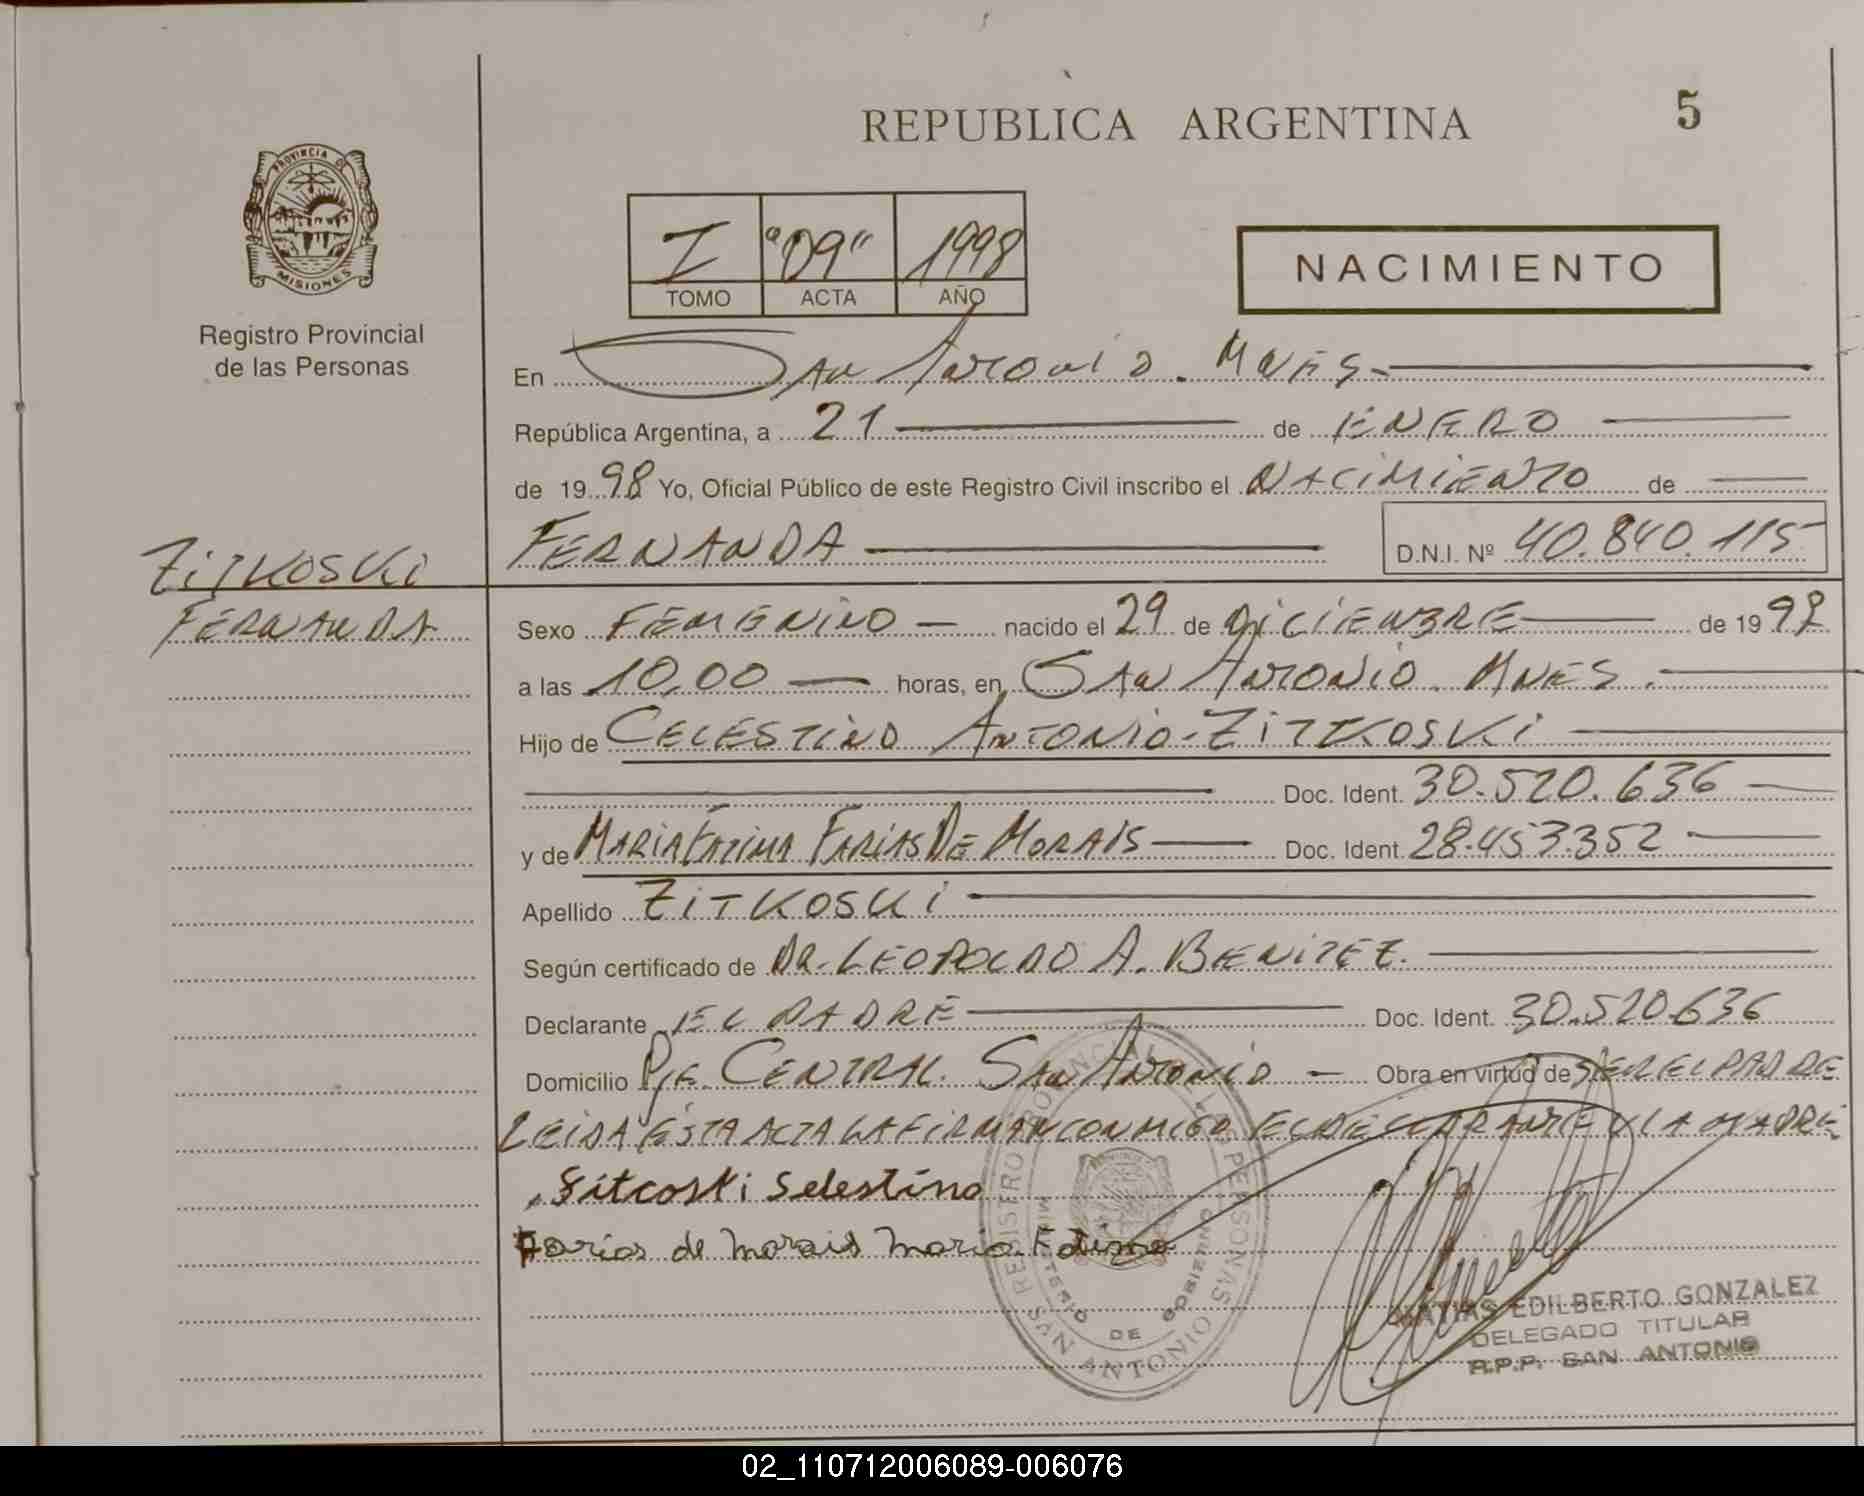 REPUBLICA ARGENTINA
5
PROVINCIA DE
MISIONES
Registro Provincial
de las Personas
I "09" 1998
TOMO ACTA AÑO
NACIMIENTO
En San Antonio. Mnes.
República Argentina, a 21 de ENERO
de 1998 Yo, Oficial Público de este Registro Civil inscribo el NACIMIENTO de
FERNANDA D.N.I. Nº 40.840.115
ZITKOSKI
FERNANDA
Sexo FEMENINO nacido el 29 de DICIEMBRE de 1997
a las 10,00 horas, en San Antonio. Mnes.
Hijo de CELESTINO ANTONIO ZITKOSKI
Doc. Ident. 30.520.636
y de MARIA FATIMA FARIAS DE MORAIS Doc. Ident. 28.453.352
Apellido ZITKOSKI
Según certificado de DR. LEOPOLDO A. BENITEZ.
Declarante EL PADRE Doc. Ident. 30.520.636
Domicilio Pje. CENTRAL. San Antonio Obra en virtud de SER EL PADRE
LEIDA ÉSTA ACTA LA FIRMAN CONMIGO EL DECLARANTE Y LA MADRE
Sitcoski Selestino
Farias de morais maria Fatima
REGISTRO PROVINCIAL DE LAS PERSONAS
MINISTERIO DE GOBIERNO
SAN ANTONIO
MATIAS EDILBERTO GONZALEZ
DELEGADO TITULAR
R.P.P. SAN ANTONIO
02_110712006089-006076